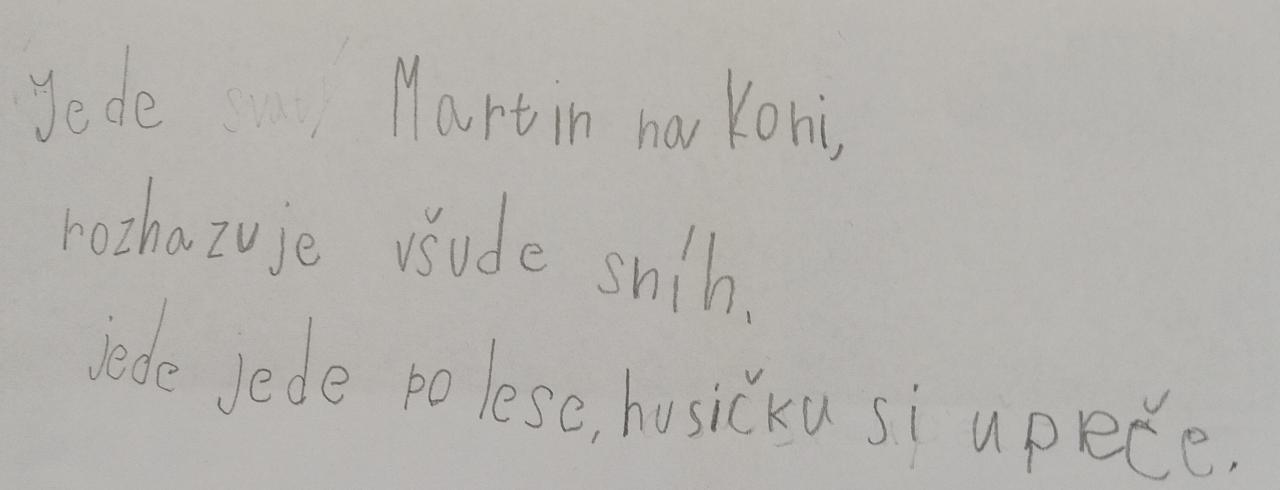 Jede svatý Martin na koni,
rozhazuje všude sníh.
jede jede po lese, husičku si upeče.